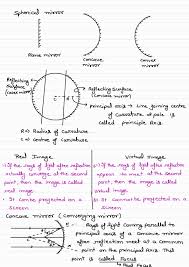 Spherical mirror
Plane mirror
Concave mirror
Convex mirror
Reflecting Surface
Reflecting Surface
(concave mirror)
principal axis → Line joining centre
of curvature & pole is
called principal axis.
R = Radius of curvature
C = Centre of curvature
Real Image
Virtual Image
1) If the rays of light after reflection
actually converge at the second
point, then the image is called
real image.
1) If the rays of light after reflection
appear to meet at the second
point, then the image is called
virtual image
It can be projected on a
screen
projected on a
screen
Concave mirror (Converging mirror)
Focus
Rays of light coming parallel to
principal axis of a concave mirror
after reflection meet at a common
point on the principal axis. This point
is called